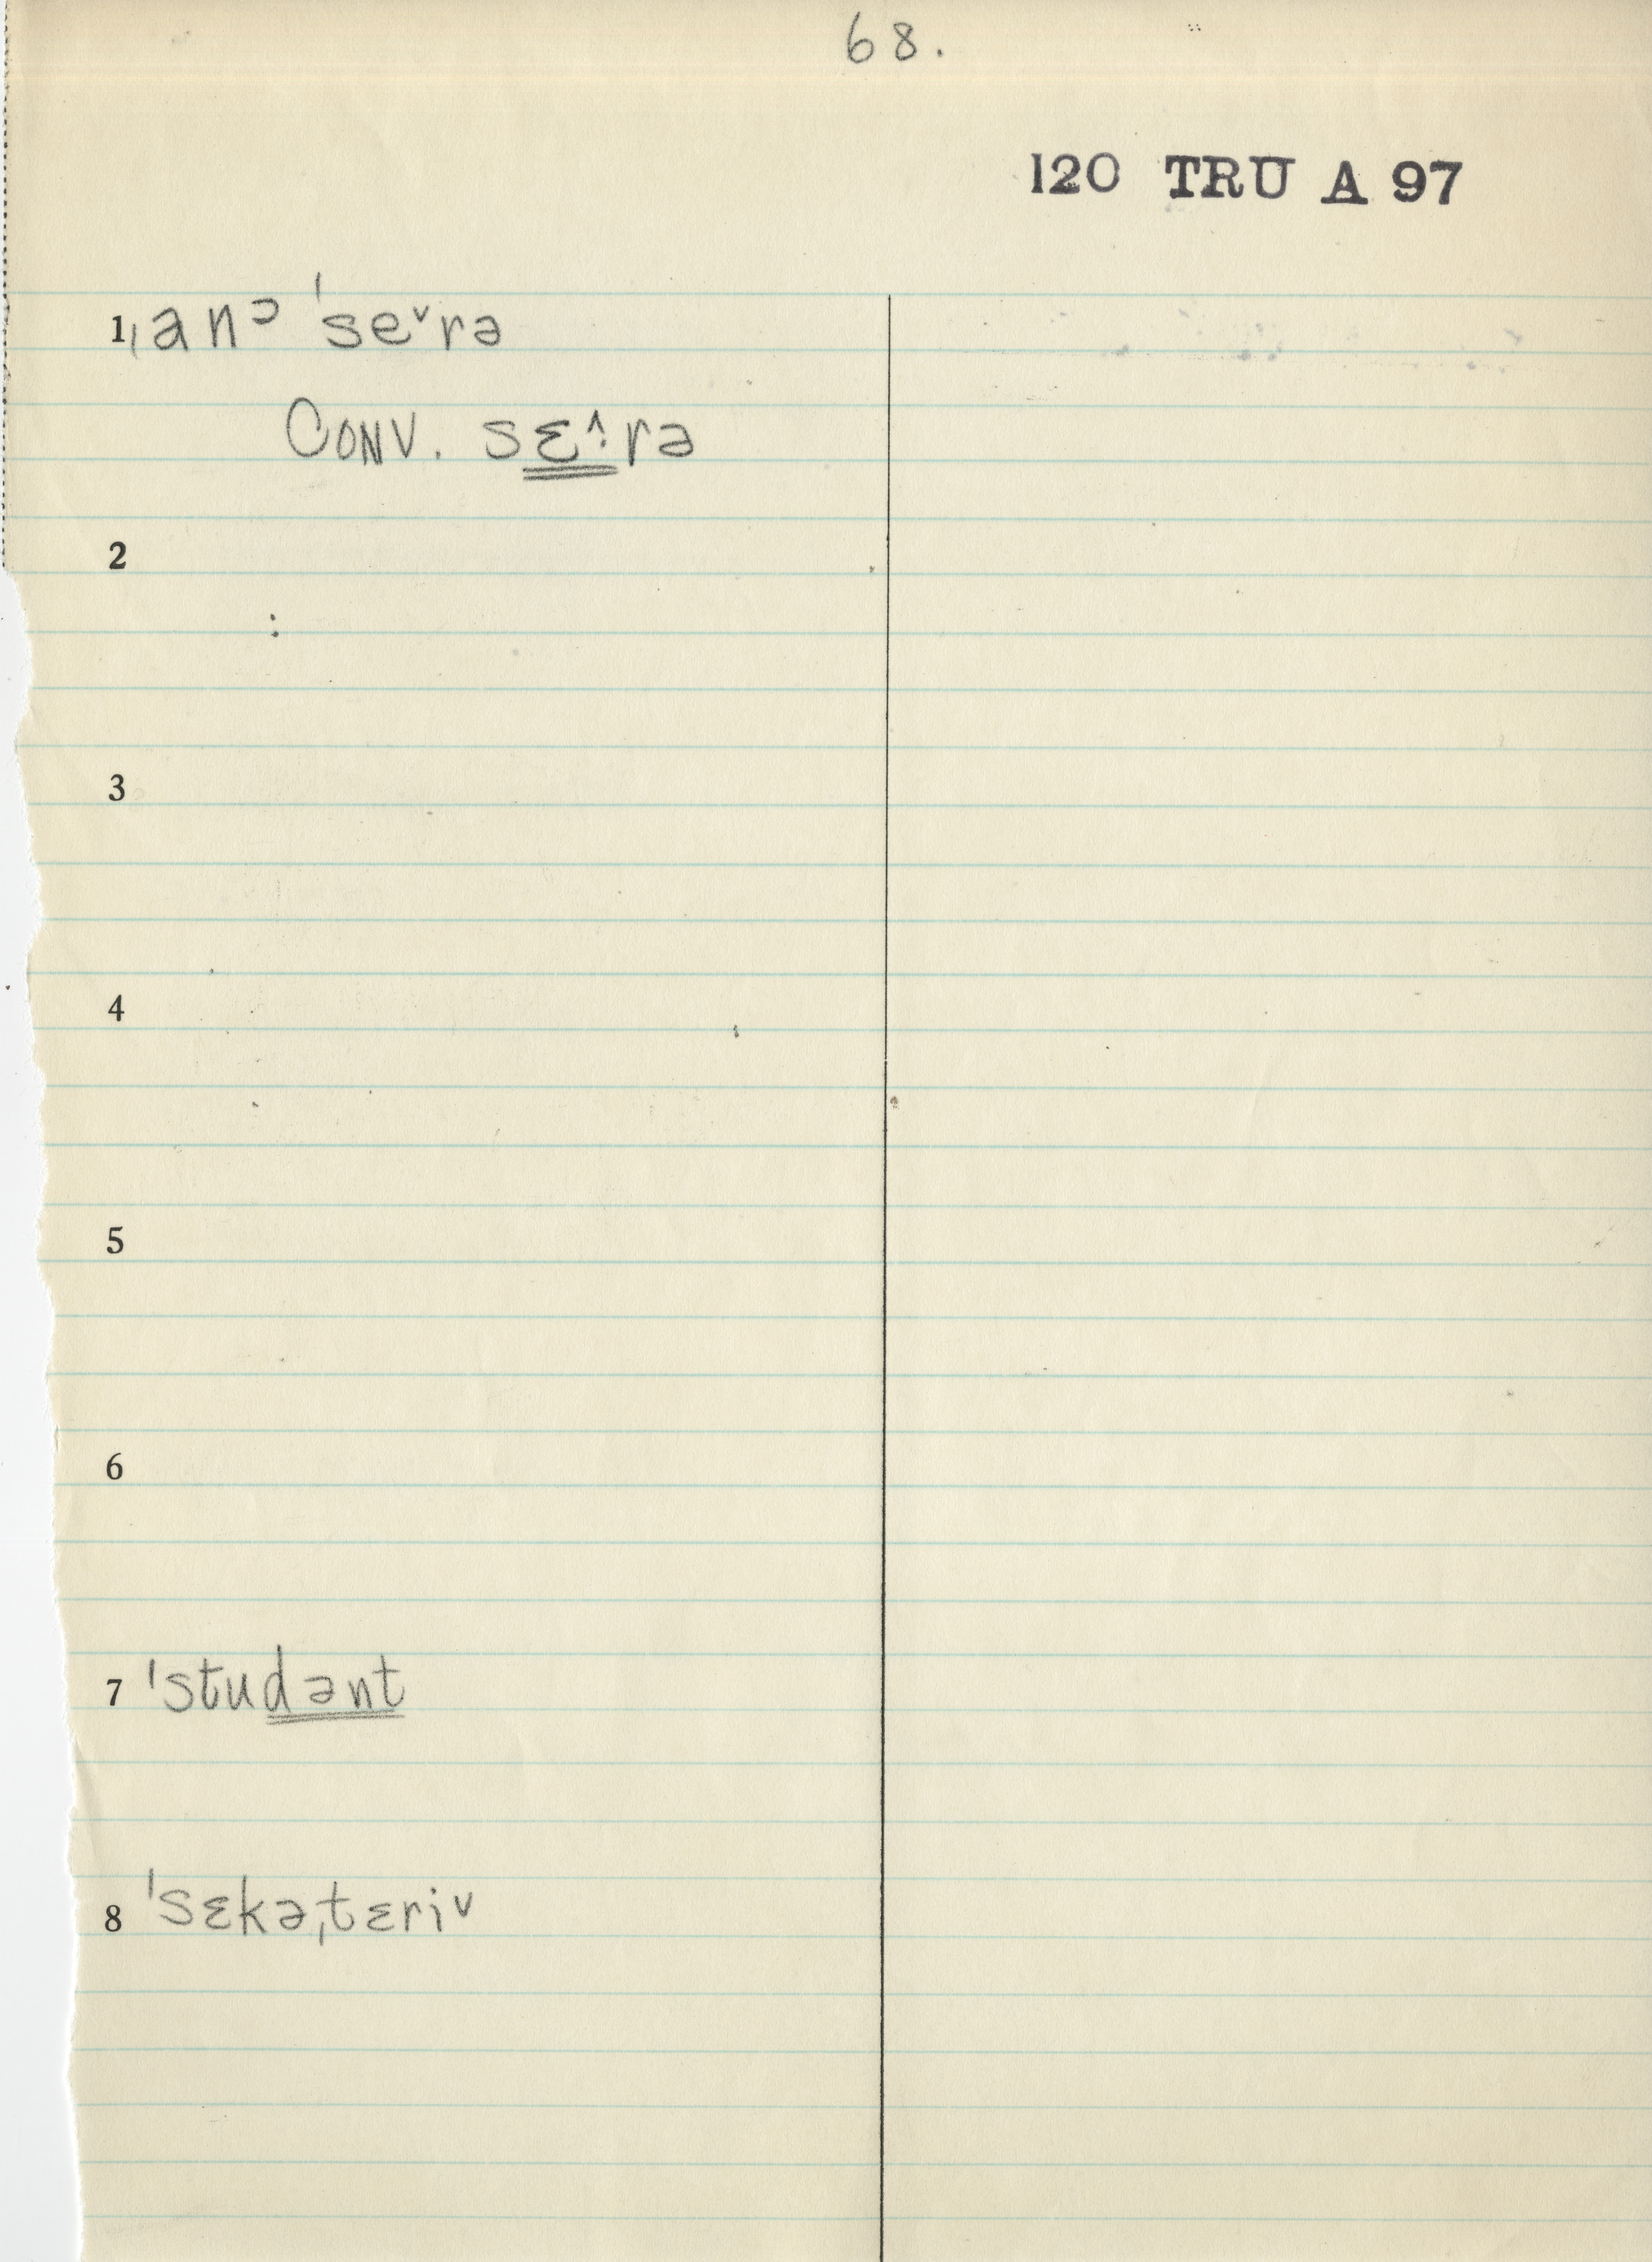 68.
120 TRU A 97
1 ˌanᵓ ˈseˇrə
CONV. sɛ^:rə
2
3
4
5
6
7 ˈstudənt
8 ˈsɛkəˌtɛriˇ